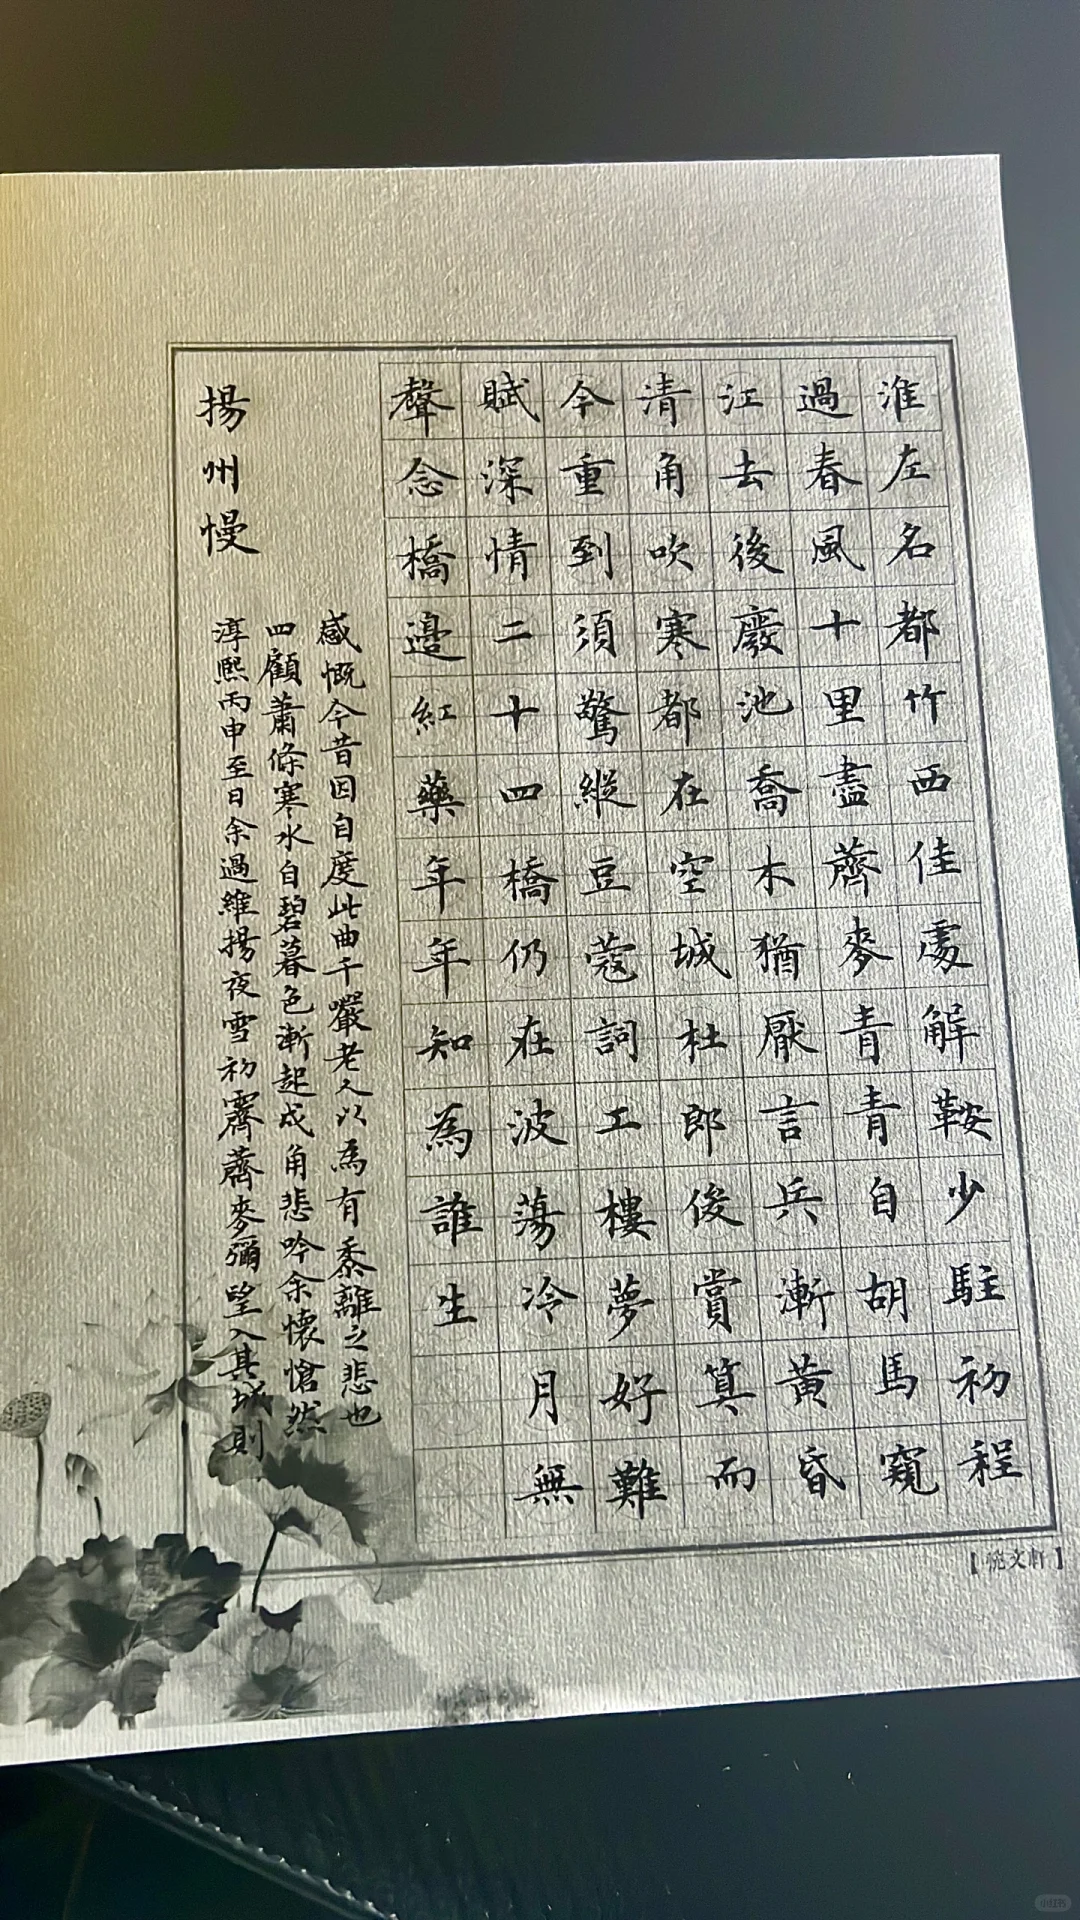 淮左名都竹西佳處解鞍少駐初程
過春風十里盡薺麥青青自胡馬窺
江去後廢池喬木猶厭言兵漸黃昏
清角吹寒都在空城杜郎俊賞算而
今重到須驚縱豆蔻詞工樓夢好難
賦深情二十四橋仍在波蕩冷月無
聲念橋邊紅藥年年知為誰生
揚州慢
淳熙丙申至日余過維揚夜雪初霽薺麥彌望入其城則
四顧蕭條寒水自碧暮色漸起戍角悲吟余懷愴然
感慨今昔因自度此曲千巖老人以為有黍離之悲也
小红书